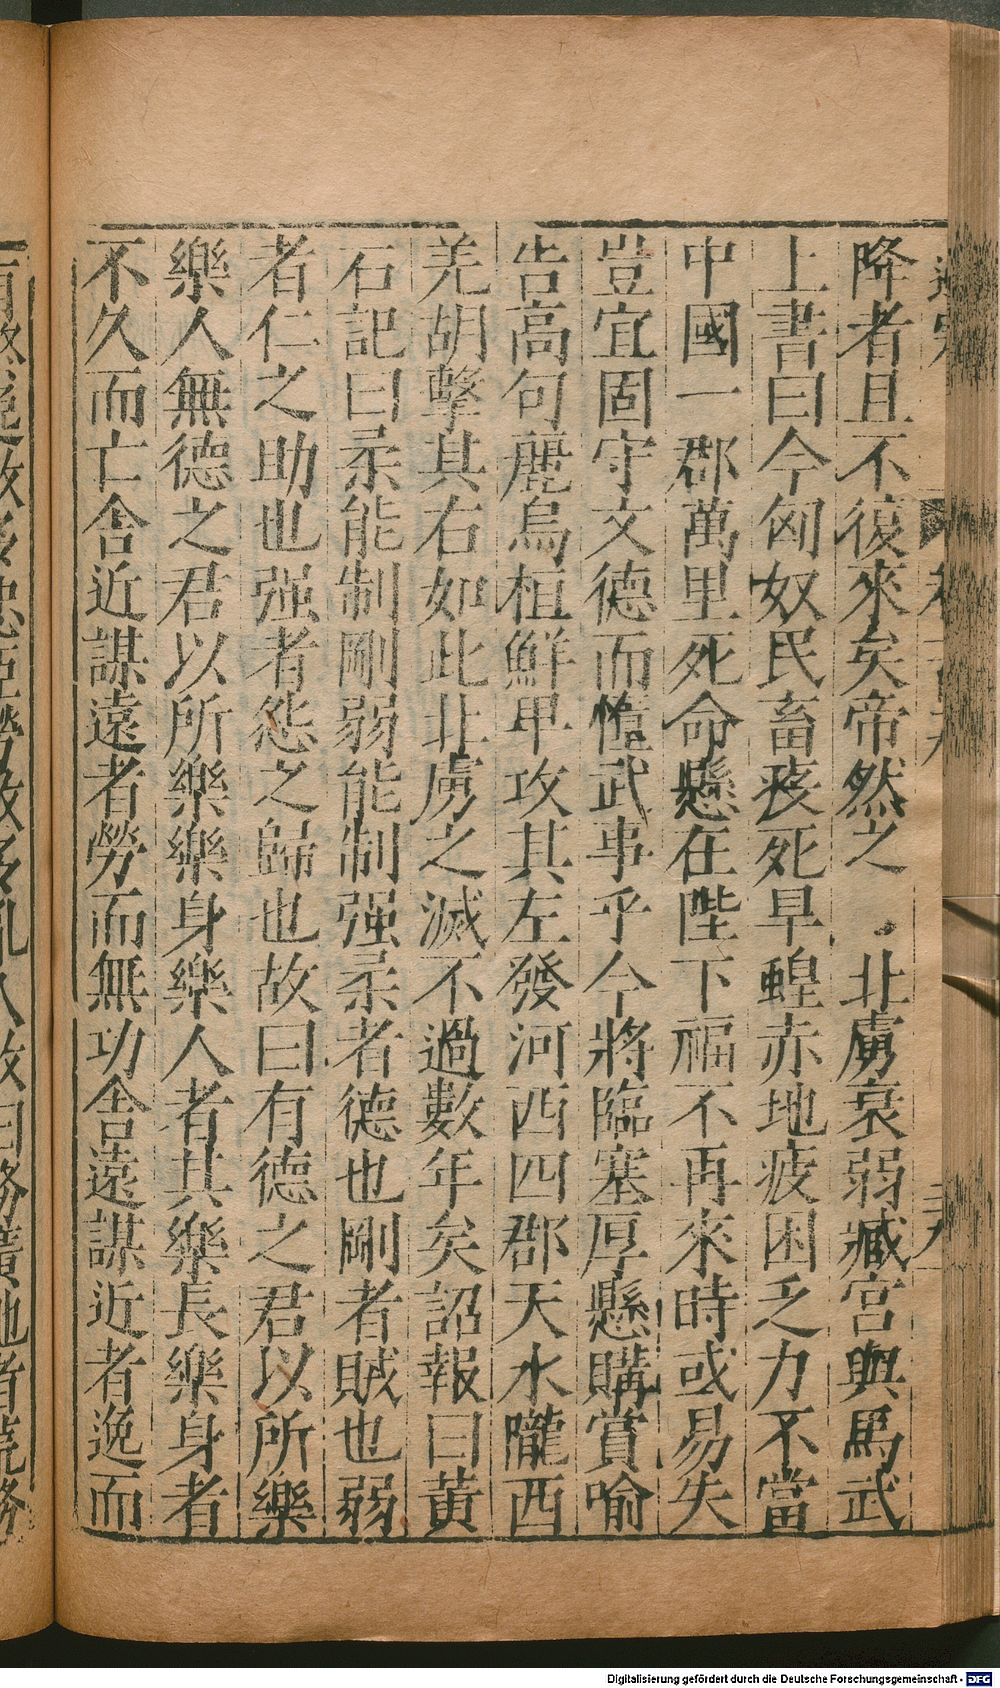 降者且不復來矣帝然之　北虜衰弱臧宮與馬武
上書曰今匈奴民畜疫死旱蝗赤地疲困乏力不當
中國一郡萬里死命懸在陛下福不再來時或易失
豈宜固守文德而惰武事乎今將臨塞厚懸購賞喻
告高句麗烏桓鮮甲攻其左發河西四郡天水隴西
羌胡擊其右如此北虜之滅不過數年矣詔報曰黃
石記曰柔能制剛弱能制强柔者德也剛者賊也弱
者仁之助也强者怨之歸也故曰有德之君以所樂
樂人無德之君以所樂樂身樂人者其樂長樂身者
不久而亡舍近謀遠者勞而無功舍遠謀近者逸而
Digitalisierung gefördert durch die Deutsche Forschungsgemeinschaft - DFG